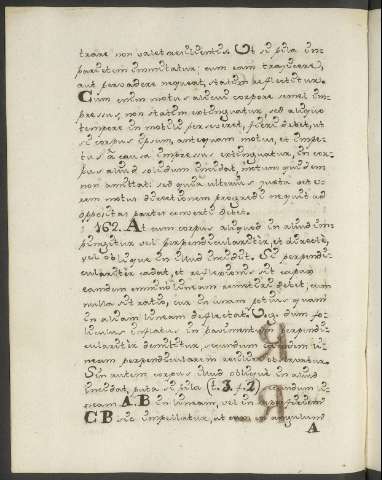 trare non valet
Ut si pila im-
parietem immittatur: eum eam trajicere,
aut pervadere nequeat, statim reflectitur.
Cum enim motus alicui corpore semel im-
pressus, non statim extinguatur, sed aliquo
tempore in motu perseveret, fieri debet, ut
si corpus ipsum, antequam motus, et impe-
tus a causa impressus extinguatur, in cor-
pus aliud solidum incidat, motum quidem
non amittat: sed quia ulterius juxta
rem motus directionem progredi nequit ad
oppositas partes converti debet.
462. At cum corpus aliquod in aliud im-
pingitur vel perpendiculariter, et directe,
vel oblique in illud incidit. Si perpendi-
culariter cadat, et reflexionis sit capax
eamdem omnino lineam remetiri debet; cum
nulla sit ratio, cur in unam potius quam
in aliam lineam deflectat. Sic dum fol-
liculus inflatus in pavimentum perpendi-
culariter demittitur, secundum eamdem li-
neam perpendicularem
Sin autem corpus illud oblique in aliud
incidat, puta si pila (t. 3. f. 2) secundum li-
neam A B in lineam, vel in superficiem
C B sic impellatur, ut cum ea angulum
A